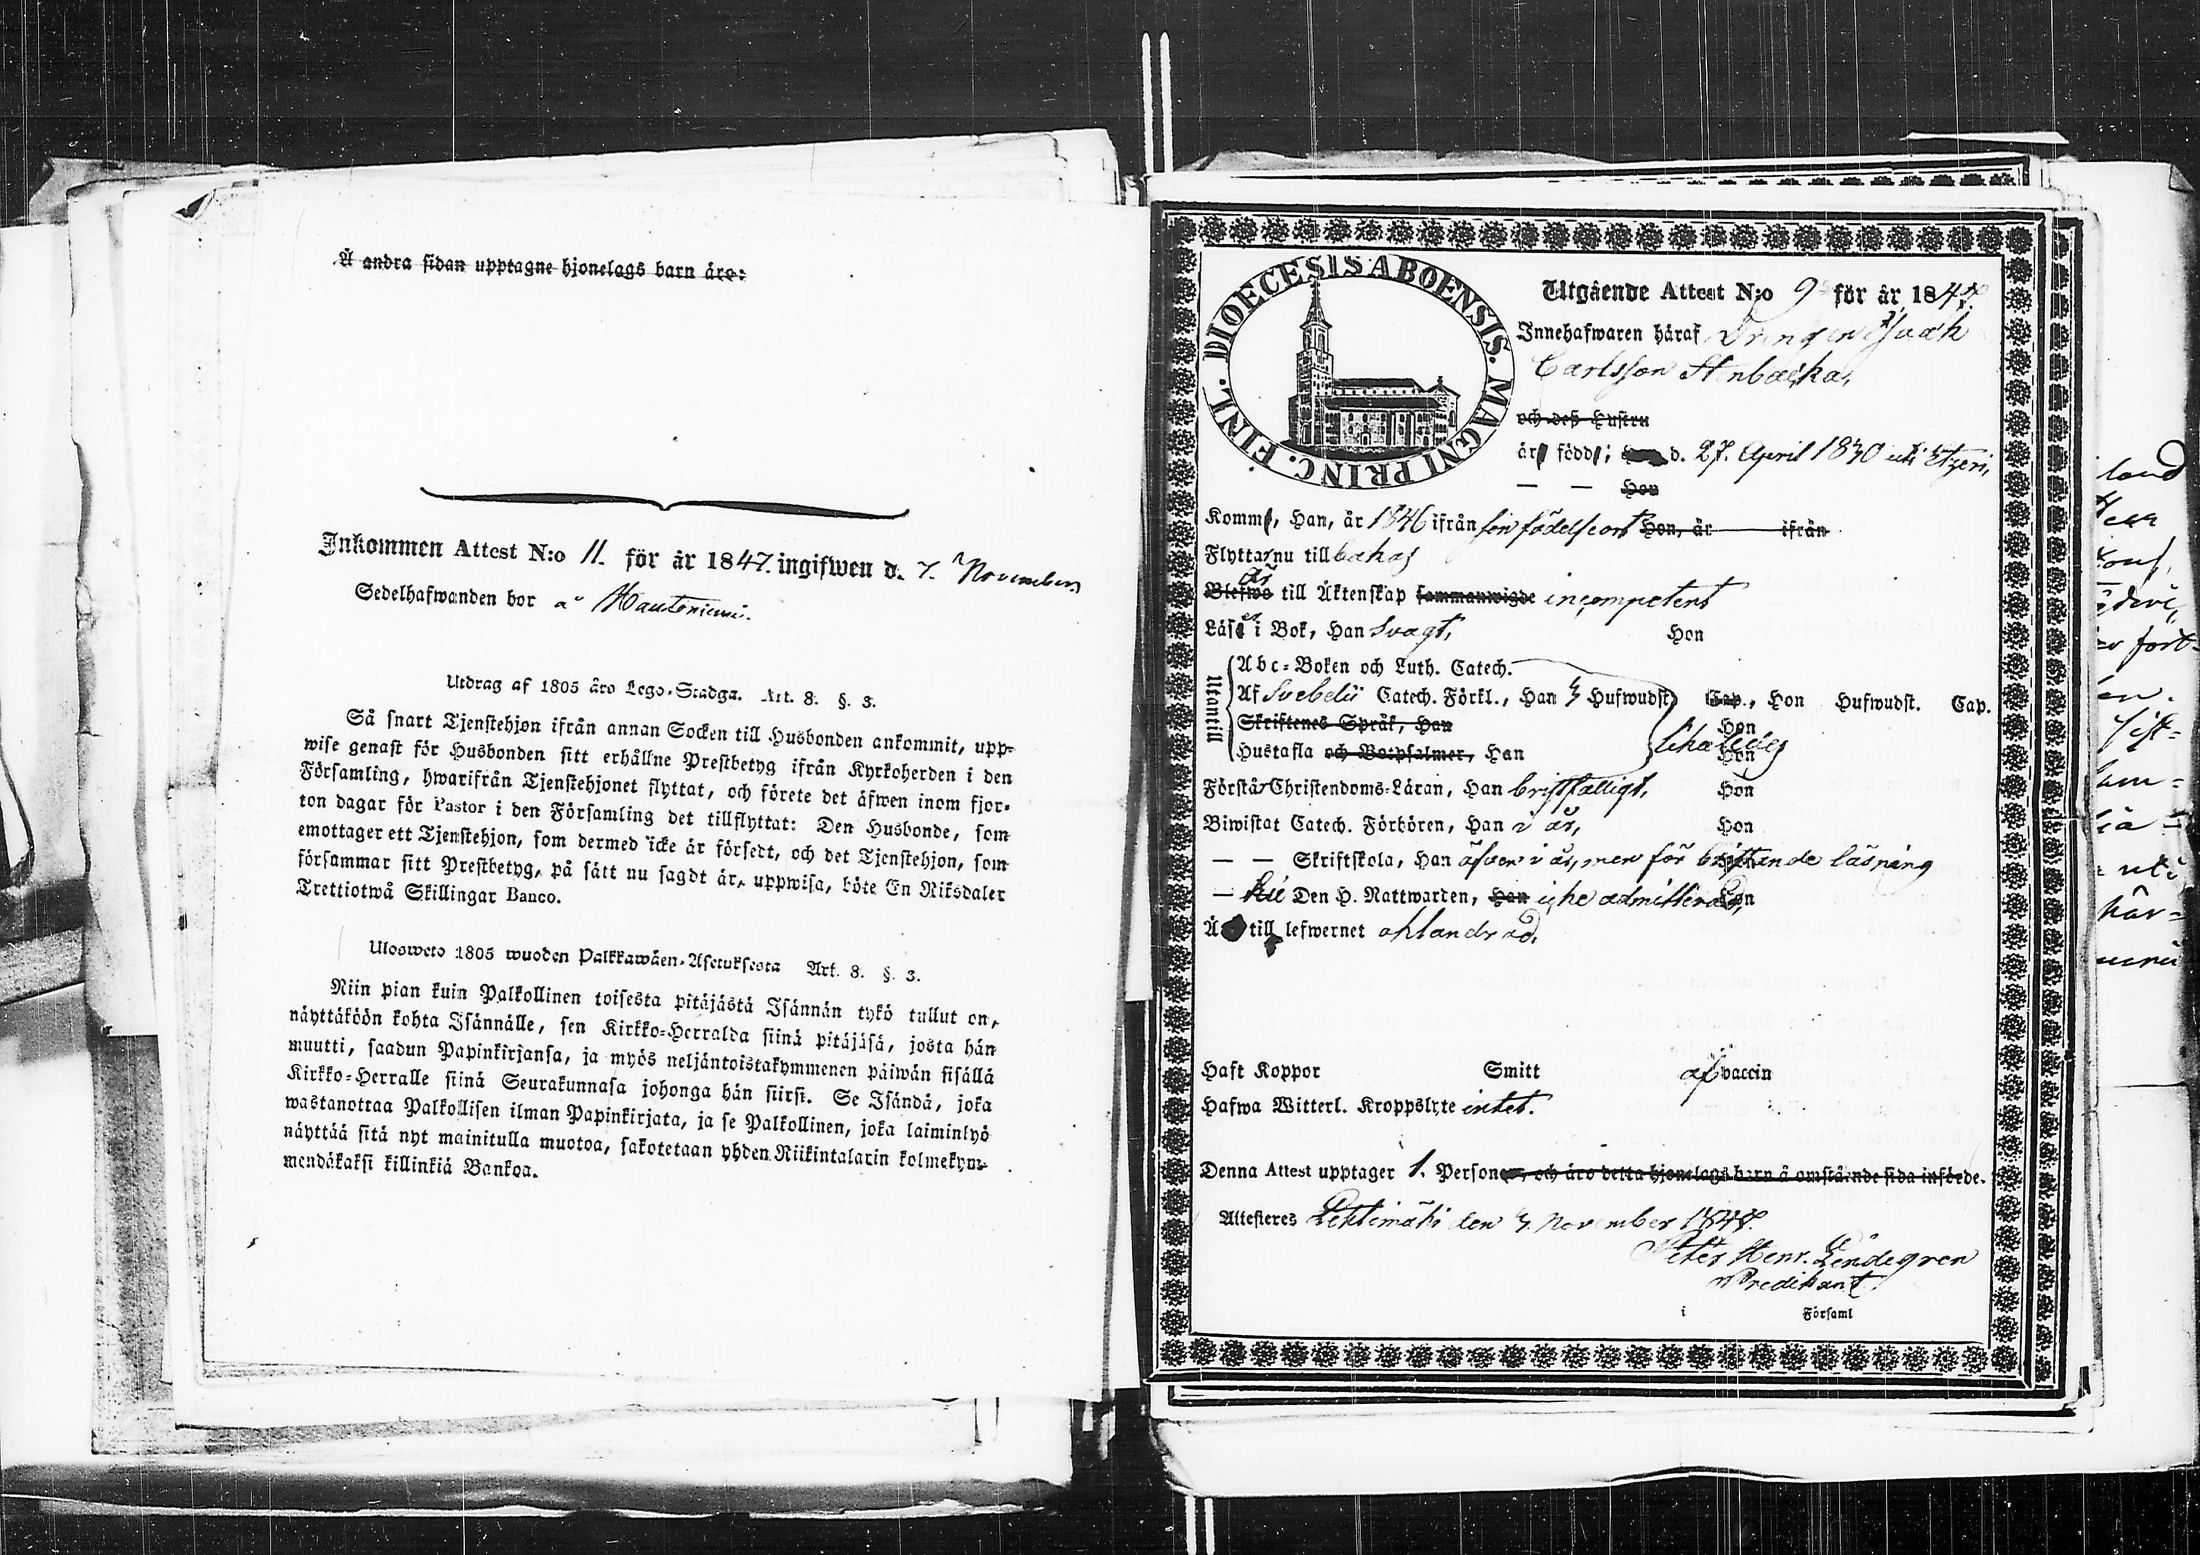 Å andra sidan upptagne hjonelags barn äro:
Inkommen Attest N:o 11. för år 1847. ingifwen d. 7. November.
Sedelhafwanden bor å Hautoniemi.
Utdrag af 1805 års Lego-Stadga. Art. 8. §. 3.
Så snart Tjenstehjon ifrån annan Socken till Husbonden ankommit, upp-
wise genast för Husbonden sitt erhållne Prestbetyg ifrån Kyrkoherden i den
Församling, hwarifrån Tjenstehjonet flyttat, och förete det äfwen inom fjor-
ton dagar för Pastor i den Församling det tillflyttat: Den Husbonde, som
emottager ett Tjenstehjon, som dermed icke är försedt, och det Tjenstehjon, som
försummar sitt Prestbetyg, på sätt nu sagdt är, uppwisa, böte En Riksdaler
Trettiotwå Skillingar Banco.
Ulosweto 1805 wuoden Palkkawäen-Asetuksesta Art. 8. §. 3.
Niin pian kuin Palkollinen toisesta pitäjästä Isännän tykö tullut on,
näyttäköön kohta Isännälle, sen Kirkko-Herralda siinä pitäjäsä, josta hän
muutti, saadun Papinkirjansa, ja myös neljäntoistakymmenen päiwän sisällä
Kirkko-Herralle siinä Seurakunnasa johonga hän siirsi. Se Isändä, joka
wastanottaa Palkollisen ilman Papinkirjata, ja se Palkollinen, joka laiminlyö
näyttää sitä nyt mainitulla muotoa, sakotetaan yhden Riikintalarin kolmekym-
mendäkaksi killinkiä Bankoa.
DIOECESIS ABOENSIS. MAGNI PRINC. FINL.
Utgående Attest N:o 9 för år 1847.
Innehafwaren häraf Drengen Isaak
Carlsson Stenbacka,
och deß Hustru
är född; d. 27. April 1830 uti Etzeri,
— — Hon
Komm, Han, år 1846 ifrån sin födelseort Hon, år ifrån
Flyttar nu till bakas
Blefwo är till Äktenskap sammanwigde incompetent
Läser i Bok, Han Svagt, Hon
Utantill
Abc-Boken och Luth. Catech.
Af Svebelii Catech. Förkl., Han 3 Hufwudst. Cap., Hon Hufwudst. Cap.
Skriftenes Språk, Han Hon
Hustafla och Botpsalmer, Han Hon
Förstår Christendoms-Läran, Han bristfälligt, Hon
Biwistat Catech. Förhören, Han i år, Hon
— — Skriftskola, Han äfven i år, men för bristande läsning
— Den H. Nattwarden, Han icke admitterad, Hon
Är till lefwernet oklandrad.
Haft Koppor Smitt af vaccin
Hafwa Witterl. Kroppslyte intet.
Denna Attest upptager 1. Personer, och äro detta hjonelags barn å omstående sida införde.
Attesteres Lehtimäki den 3. November 1847.
Peter Henr. Lindegren
Predikant.
i Församl
land